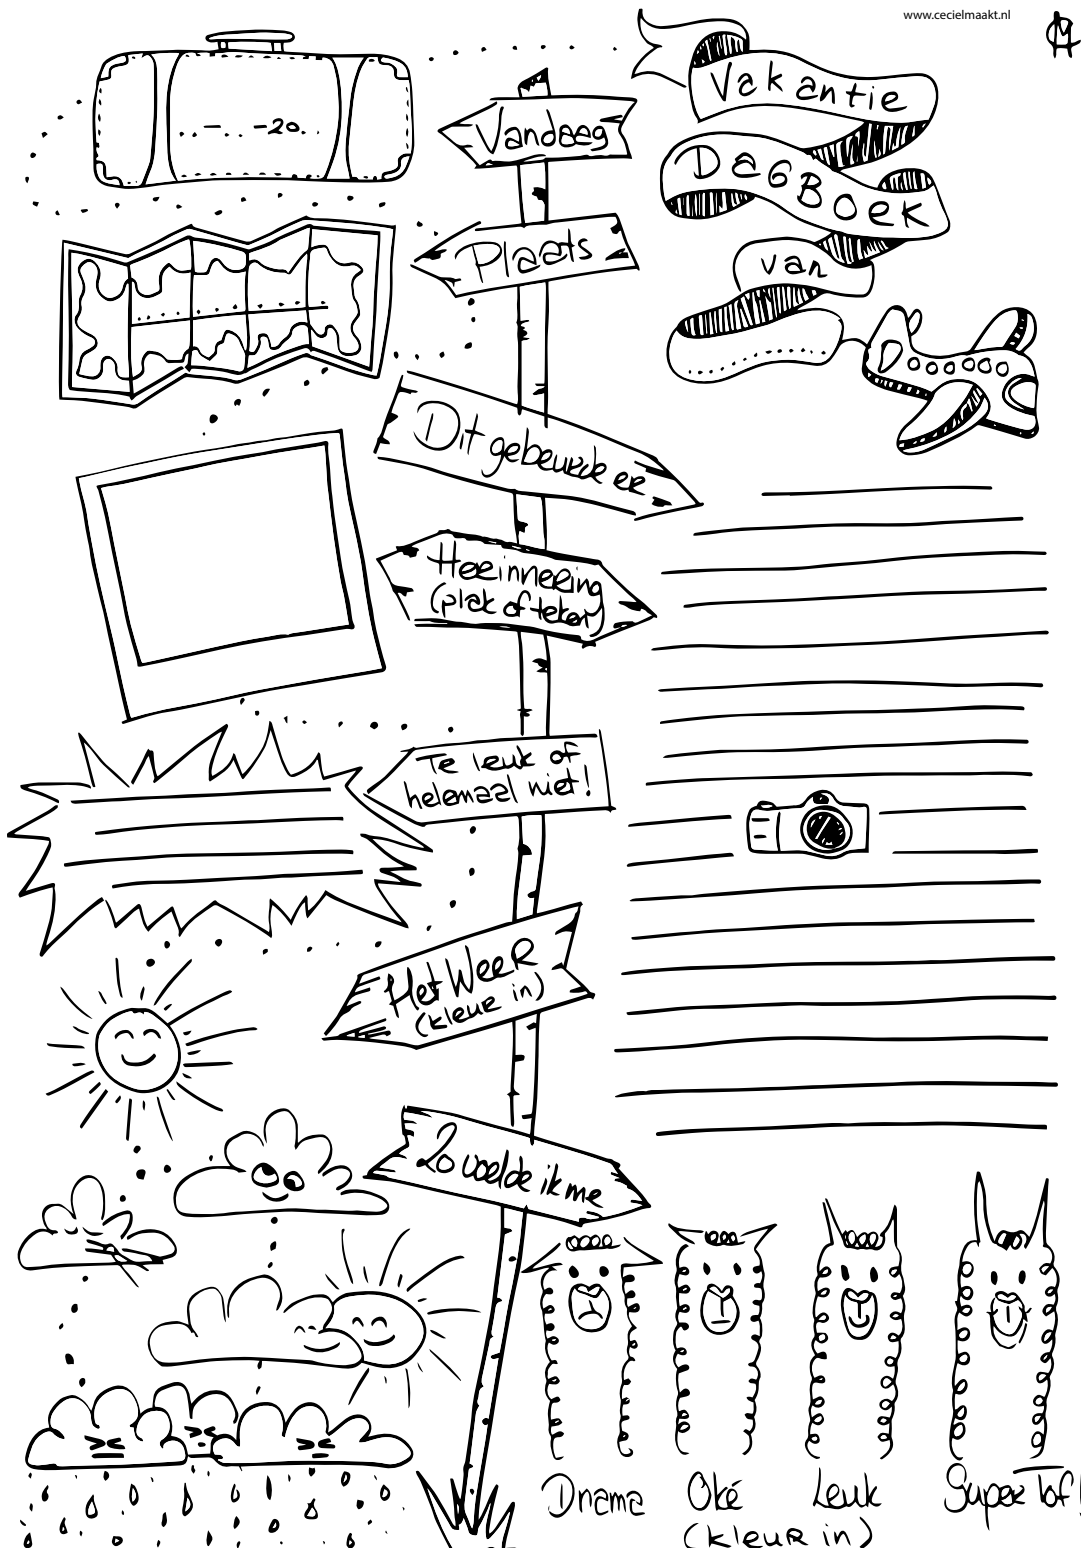 www.cecielmaakt.nl
Vakantie
DagBoek
van
.. - .. -20..
Vandaag
Plaats
Dit gebeurde er
Herinnering
(plak of teken)
Te leuk of
helemaal niet!
Het Weer
(kleur in)
Zo voelde ik me
Drama
Oké
Leuk
Super Tof!
(kleur in)